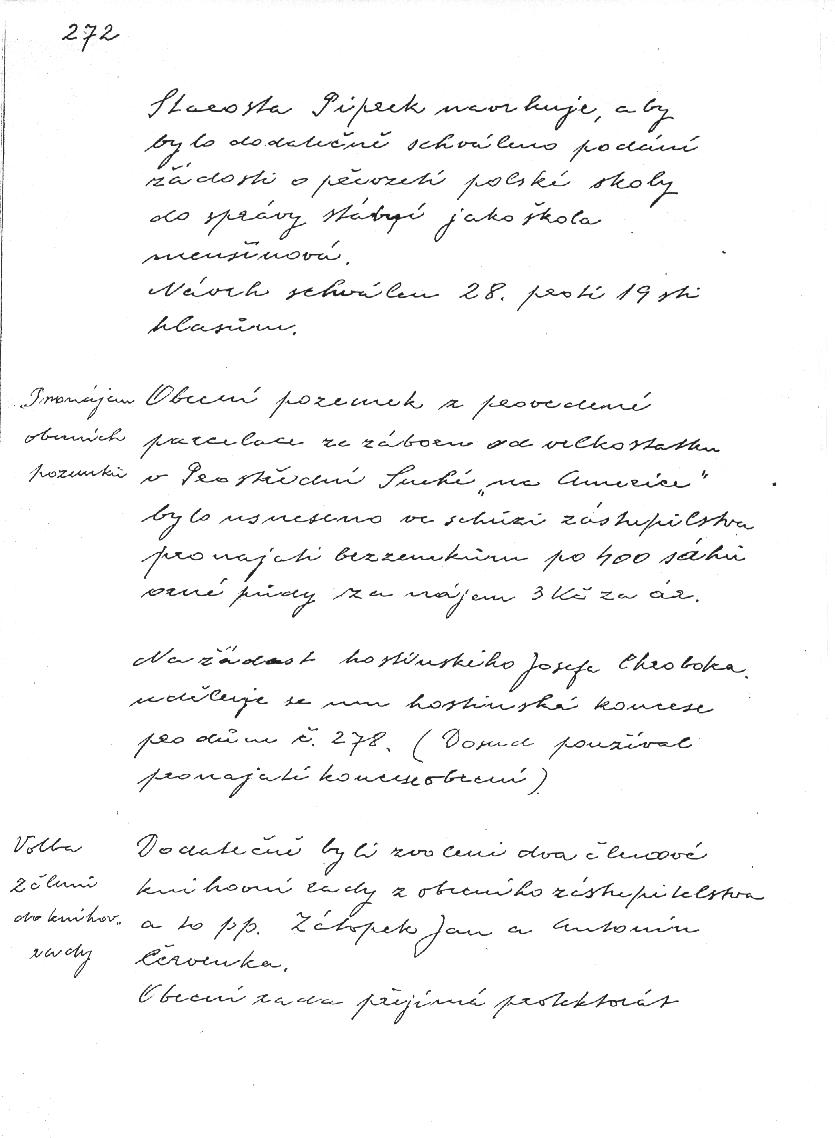 272
Starosta Piprek navrhuje, aby
bylo dodatečně schváleno podání
žádosti o převzetí polské školy
do správy státní jako škola
menšinová.
Návrh schválen 28. proti 19 sti
hlasům.
Pronájem
obecních
pozemků
Obecní pozemek z provedené
parcelace ze záboru od velkostatku
v Prostřední Suché „na Americe"
bylo usneseno ve schůzi zastupitelstva
pronajati bezzemkům po 400 sáhů
orné půdy za nájem 3 Kč za ár.
Na žádost hostinského Josefa Chroboka
uděluje se mu hostinská koncese
pro dům č. 278. (Dosud používal
pronajatí koncese obecní)
Volba
2 členů
do knihov.
rady
Dodatečně byli zvoleni dva členové
knihovní rady z obecního zástupitelstva
a to pp. Zátopek Jan a Antonín
Červenka.
Obecní rada přejímá protektorát